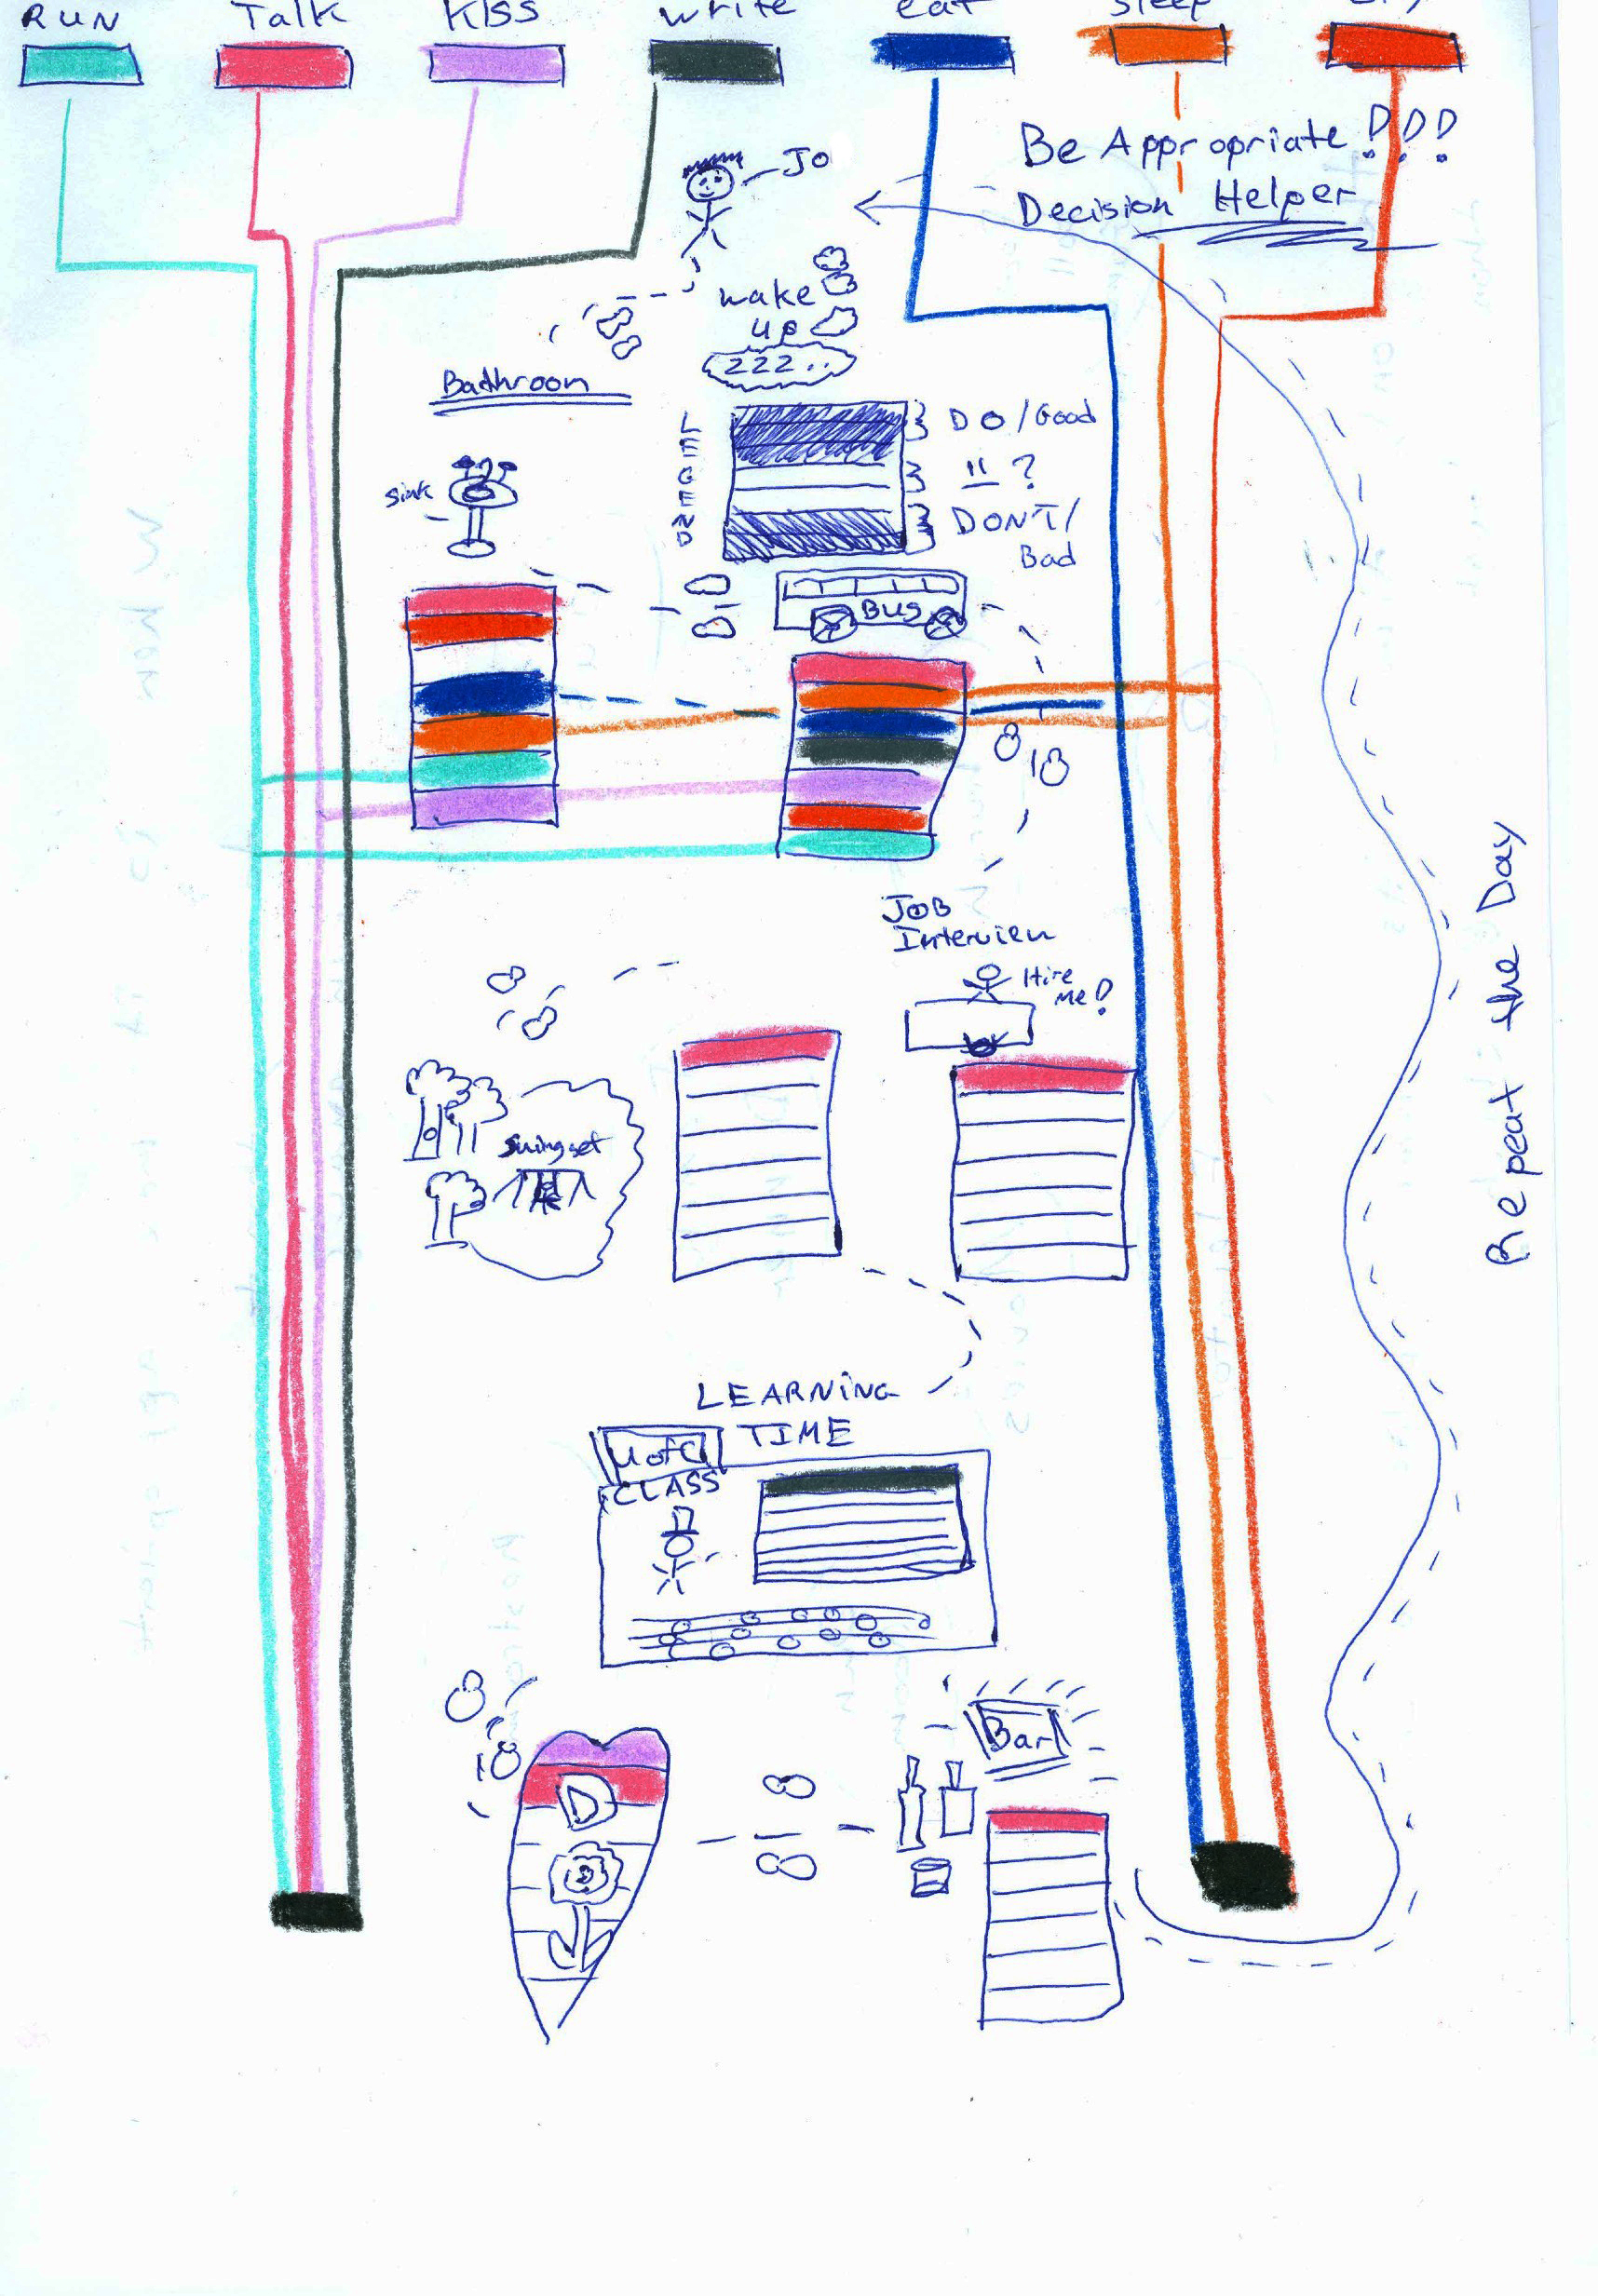 RUN Talk KISS write eat sleep cry
JO
Be Appropriate!!!
Decision Helper
wake
up
ZZZ..
Badhroon
sink
LEGEND
DO/Good
" ?
DON'T/
Bad
BUS
JOB
Interview
Hire
Me!
Swingset
Repeat the Day
LEARNING
TIME
U of C
CLASS
Bar
D